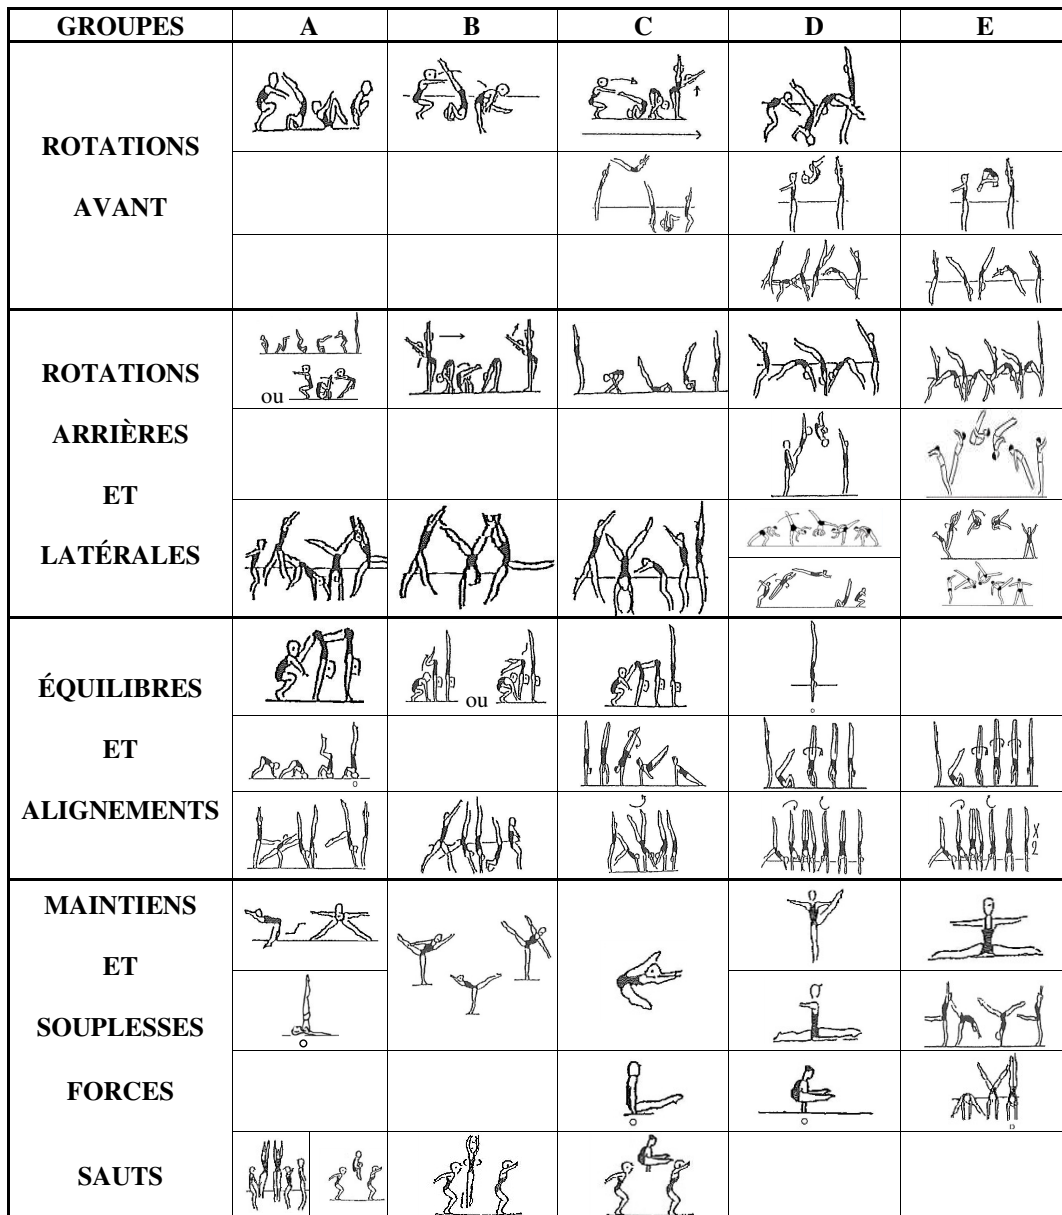 GROUPES A B C D E
ROTATIONS
AVANT
ROTATIONS
ARRIÈRES
ET
LATÉRALES
ou
ÉQUILIBRES
ET
ALIGNEMENTS
ou
X
2
MAINTIENS
ET
SOUPLESSES
FORCES
SAUTS